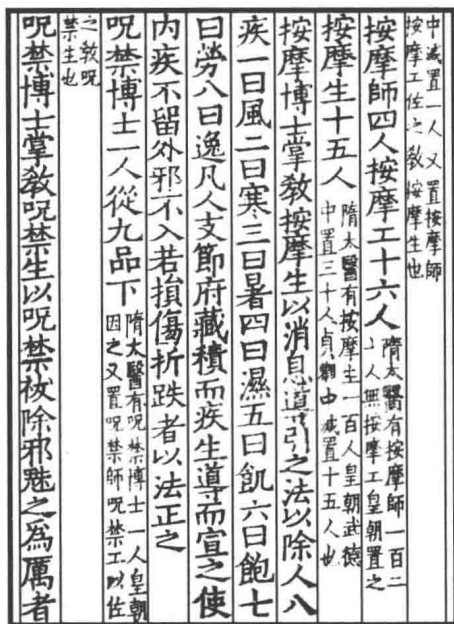 中減置一人又置按摩師
按摩工佐之教按摩生也
按摩師四人按摩工十六人
隋太醫有按摩師一百二
十人無按摩工皇朝置之
按摩生十五人
隋太醫有按摩生一百人皇朝武德
中置三十人貞觀中減置十五人也
按摩博士掌教按摩生以消息導引之法以除人八
疾一曰風二曰寒三曰暑四曰濕五曰飢六曰飽七
曰勞八曰逸凡人支節府藏積而疾生導而宣之使
内疾不留外邪不入若損傷折跌者以法正之
呪禁博士一人從九品下
隋太醫有呪禁博士一人皇朝
因之又置呪禁師呪禁工以佐
之教呪
禁生也
呪禁博士掌教呪禁生以呪禁祓除邪魅之爲厲者